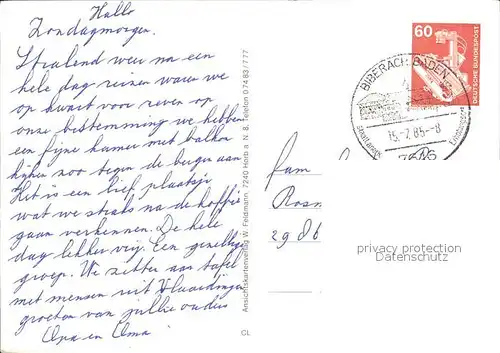 Hallo
Zondagmorgen.
Stralend weer na een
hele dag reizen waren we
op kwart voor zeven op
onze bestemming we hebben
een fijne kamer met balkon
kijken zoo tegen de bergen aan
Het is een lief plaatsje
wat we straks na de koffie
gaan verkennen. De hele
dag lekker vrij. Een gezellige
groep. We zitten aan tafel
met mensen uit Vlaardingen
groeten van jullie ouders
Opa en Oma
CL
Ansichtskartenverlag W. Feldmann, 7240 Horb a. N. 8, Telefon 0 74 83 / 7 77
60
DEUTSCHE BUNDESPOST
BIBERACH, BADEN
15.-7.85-8
7616
Fam
Rosm
2986
privacy protection
Datenschutz